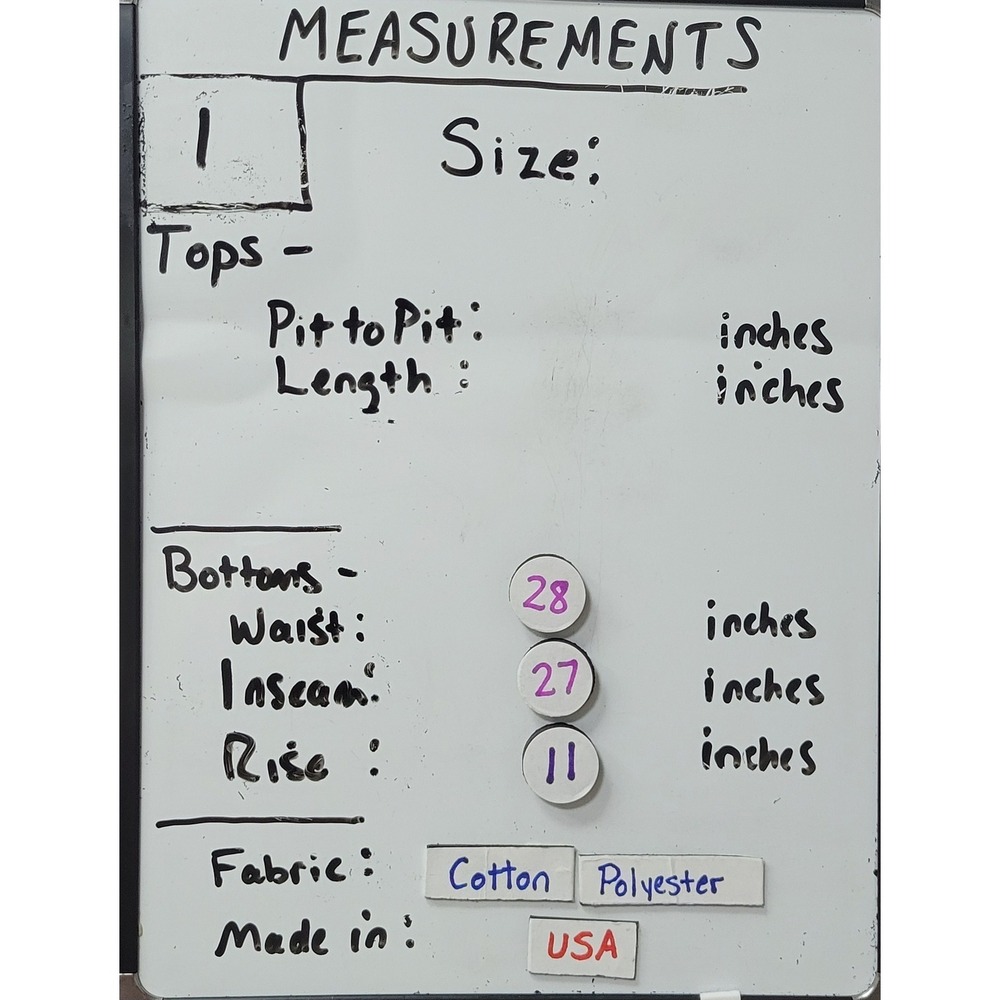 MEASUREMENTS
1
Size:
Tops -
Pit to Pit: inches
Length : inches
Bottoms -
Waist: 28 inches
Inseam: 27 inches
Rise : 11 inches
Fabric: Cotton Polyester
Made in: USA